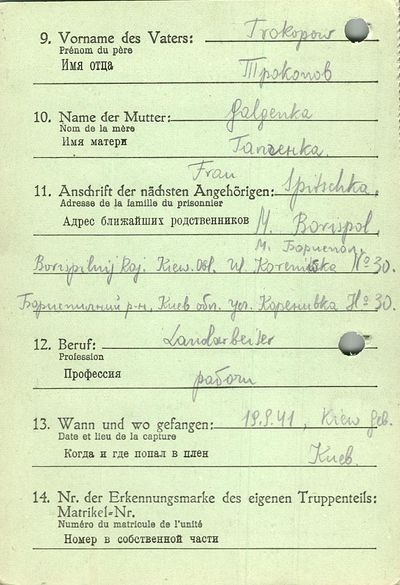 9. Vorname des Vaters: Trokopow
Prénom du père
Имя отца Трокопов
10. Name der Mutter: Galgenka
Nom de la mère
Имя матери Галченка.
Frau
11. Anschrift der nächsten Angehörigen: Spitschka,
Adresse de la famille du prisonnier
Адрес ближайших родственников M. Borispol,
М. Бориспол,
Borispilnij Raj. Kiew. Obl. Ul. No 30.
р-н, Киев обл. ул. No 30.
12. Beruf: Landarbeiter
Profession
Профессия
13. Wann und wo gefangen: 19.9.41, Kiew Geb.
Date et lieu de la capture
Когда и где попал в плен Киев.
14. Nr. der Erkennungsmarke des eigenen Truppenteils:
Matrikel-Nr.
Numéro du matricule de l'unité
Номер в собственной части